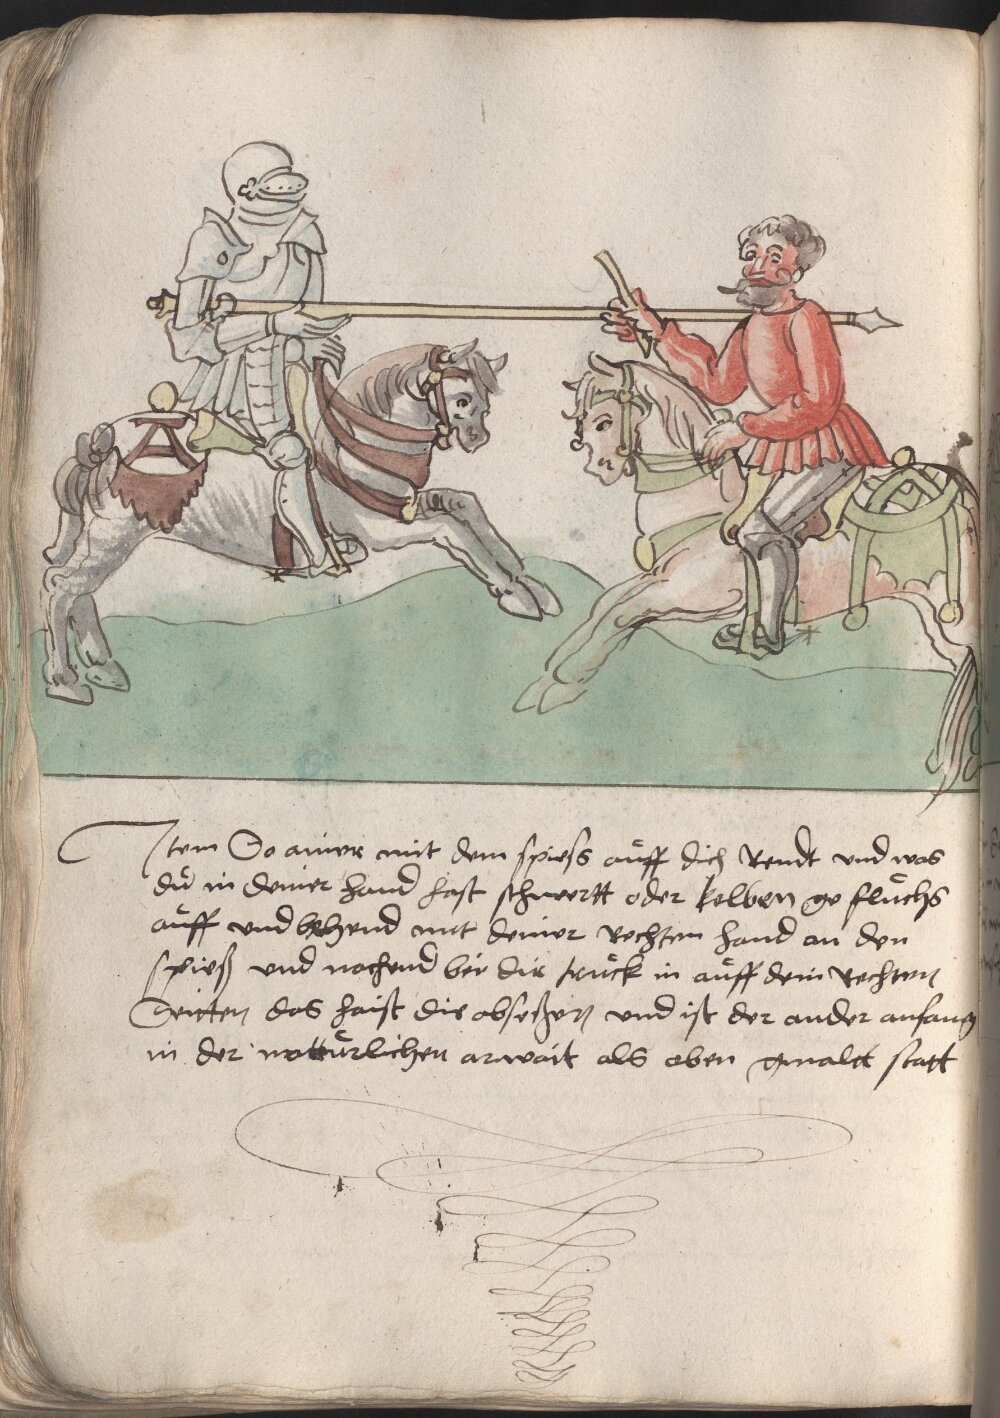 Item So ainer mit dem spiess aůff dich Rendt und was
dů in deiner hand hast schwertt oder kolben ge flůchs
aůff und behend mit deiner Rechten hand an den
spieß und nochend bei dir trůck in aůff dein Rechten
Seitten das haist die absetzen und ist der ander anfang
in der nattůrlichen arwait als oben gmalt statt